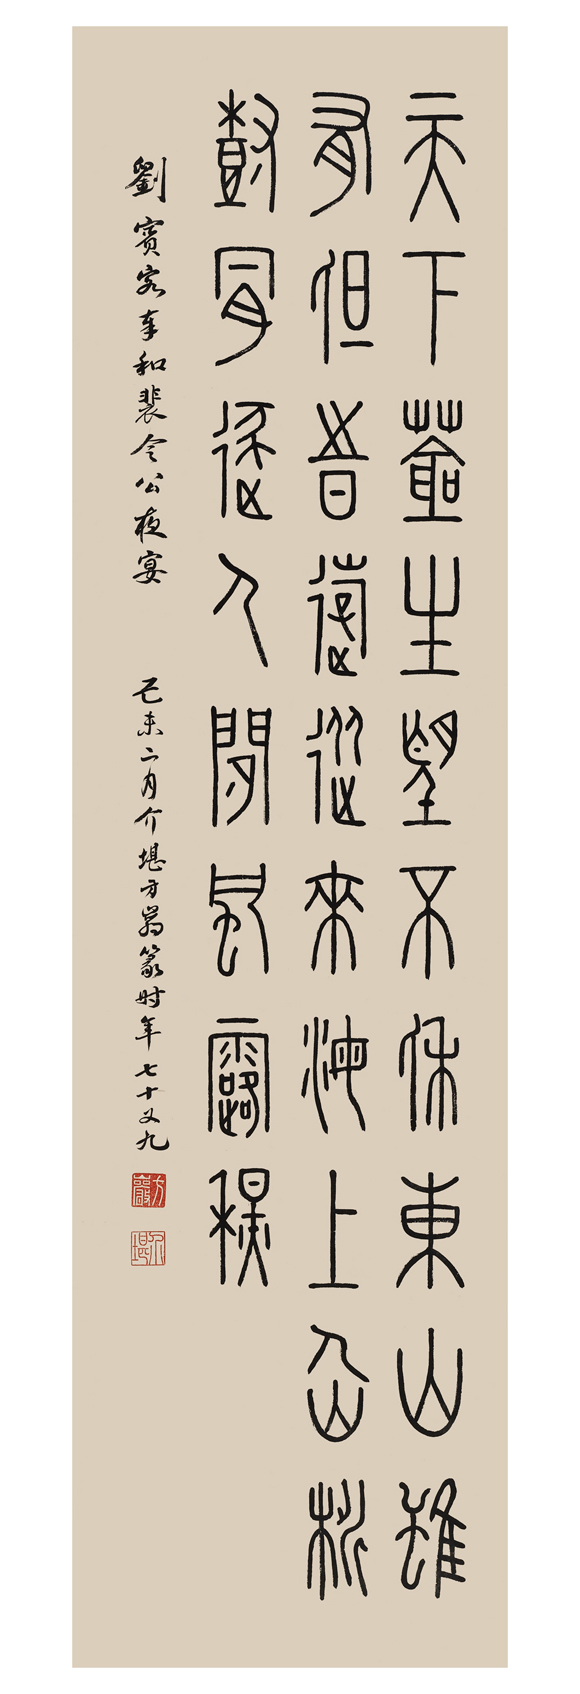 天下蒼生望不休東山雖
有但旹遊從來海上仚桃
尌肯逐人間風露秋
劉賓客奉和裴令公夜宴
己未二月介堪方嵒篆时年七十又九
方巖
介堪